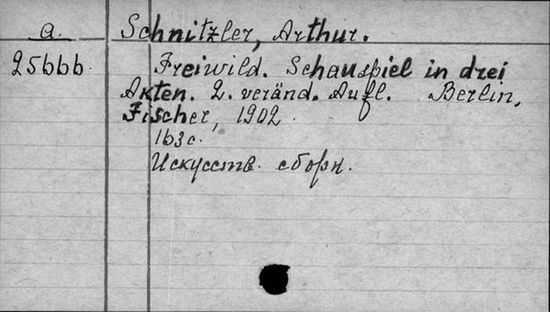 a. Schnitzler, Arthur.
25666. Freiwild. Schauspiel in drei
Akten. 2. veränd. Aufl. Berlin,
Fischer, 1902
163 с.
Искусств. сборн.